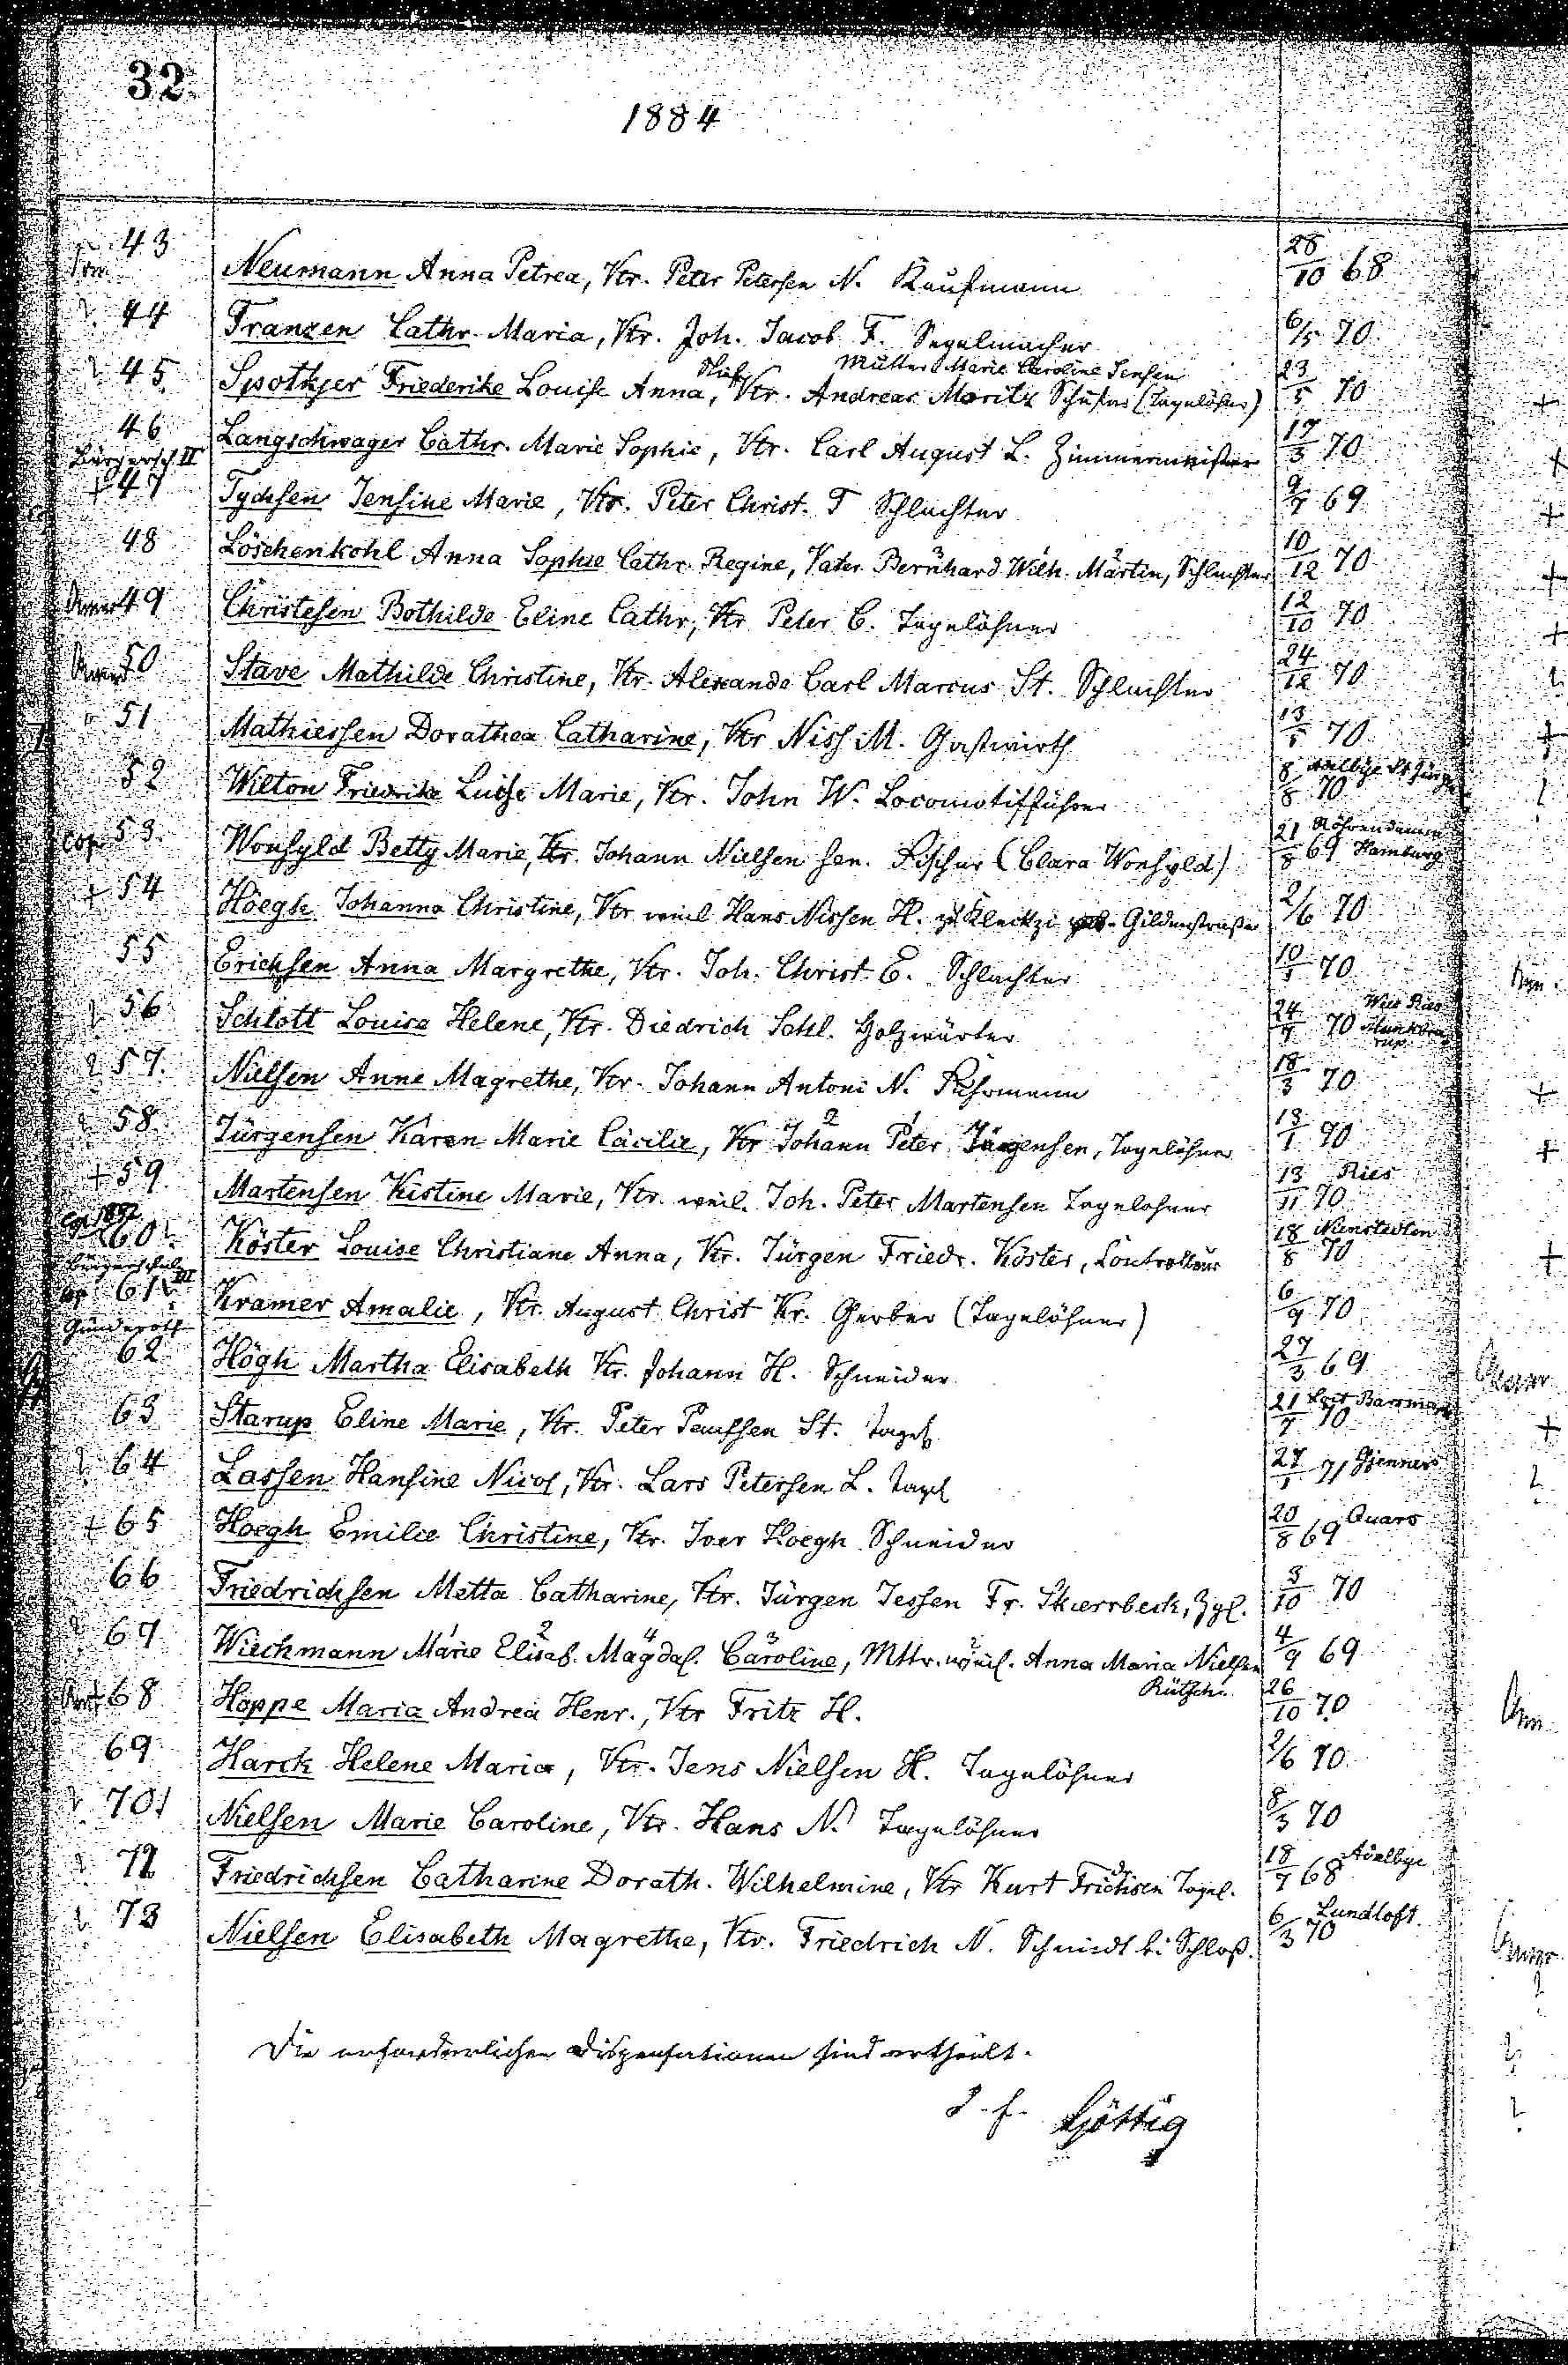 32
1884
43 Neumann Anna Petrea, Vtr. Peter Petersen N. Kaufmann 28/10 68
44 Franzen Cathr. Maria, Vtr. Joh. Jacob F. Segelmacher 6/5 70
Stief Mutter Marie Caroline Jensen
45 Spothjer Friederike Louise Anna, Vtr. Andreas Moritz Schuster (Tagelöhner) 23/5 70
46 Langschwager Cathr. Marie Sophie, Vtr. Carl August L. Zimmermeister 17/3 70
Bürgersch. II
+ 47 Tychsen Jensine Marie, Vtr. Peter Christ. T Schlachter 9/7 69
48 Löschenkohl Anna Sophie Cathr. Regine, Vater Bernhard Wilh. Martin, Schlachter 10/12 70
49 Christesen Bothilde Eline Cathr, Vtr Peter C. Tagelöhner 12/10 70
50 Stave Mathilde Christine, Vtr. Alexande Carl Marcus St. Schlachter 24/12 70
51 Mathiessen Dorathea Catharine, Vtr Niss M. Gastwirth 13/5 70
52 Wilton Friedrike Luise Marie, Vtr. John W. Locomotifführer 8/8 70
cop. 53 Wonsyld Betty Marie, Vtr. Johann Nielsen sen. Fischer (Clara Wonsyld) 21/8 69 Röhrendamm Hamburg
+ 54 Höegh Johanna Christine, Vtr weil Hans Nissen H. Gildenstraße 2/6 70
55 Erichsen Anna Margrethe, Vtr. Joh. Christ E. Schlachter 10/5 70
56 Schlott Louisa Helene, Vtr. Diedrich Schl. Holzwärter 24/7 70
57. Nielsen Anne Magrethe, Vtr. Johann Antoni N. Fuhrmann 18/3 70
58 Jürgensen Karen Marie Cäcilie, Vtr Johann 2 Peter 1 Jürgensen, Tagelöhner 13/1 70
+ 59 Martensen Kistine Marie, Vtr. weil. Joh. Peter Martensen Tagelöhner 13/11 70 Ries
60 Köster Louise Christiane Anna, Vtr. Jürgen Friedr. Köster, Controlleur 18/8 70 Nienstedten
Bürgerschule III
61 Kramer Amalie, Vtr. August Christ Kr. Gerber (Tagelöhner) 6/9 70
Günderoth
62 Högh Martha Elisabeth Vtr. Johann H. Schneider 27/3 69
63 Starup Eline Marie, Vtr. Peter Paulsen St. Tagel. 21/7 70 Loit Barsmark
64 Lassen Hansine Nicol, Vtr. Lars Petersen L. Tagel 27/1 71 Gjenner
+ 65 Hoegh Emilie Christine, Vtr. Iver Hoegh Schneider 20/8 69 Quars
66 Friedrichsen Metta Catharine, Vtr. Jürgen Jessen Fr. Skærrbeck, Zgl. 3/10 70
67 Wiechmann Marie 1 Elisab. 2 Magdal. 4 Caroline 3, Mttr. weil. Anna Maria Nielsen 4/9 69
68 Hoppe Maria Andrea Henr., Vtr Fritz H. 26/10 70
69 Harck Helene Maria, Vtr. Jens Nielsen H. Tagelöhner 2/6 70
70 Nielsen Marie Caroline, Vtr. Hans N. Tagelöhner 8/3 70
72 Friedrichsen Catharine Dorath. Wilhelmine, Vtr Kurt Frichsen Tagel. 18/7 68
73 Nielsen Elisabeth Magrethe, Vtr. Friedrich N. Schmidt bei Schloß. 6/3 70 Lundtoft
Die erforderlichen Dispensationen sind ertheilt.